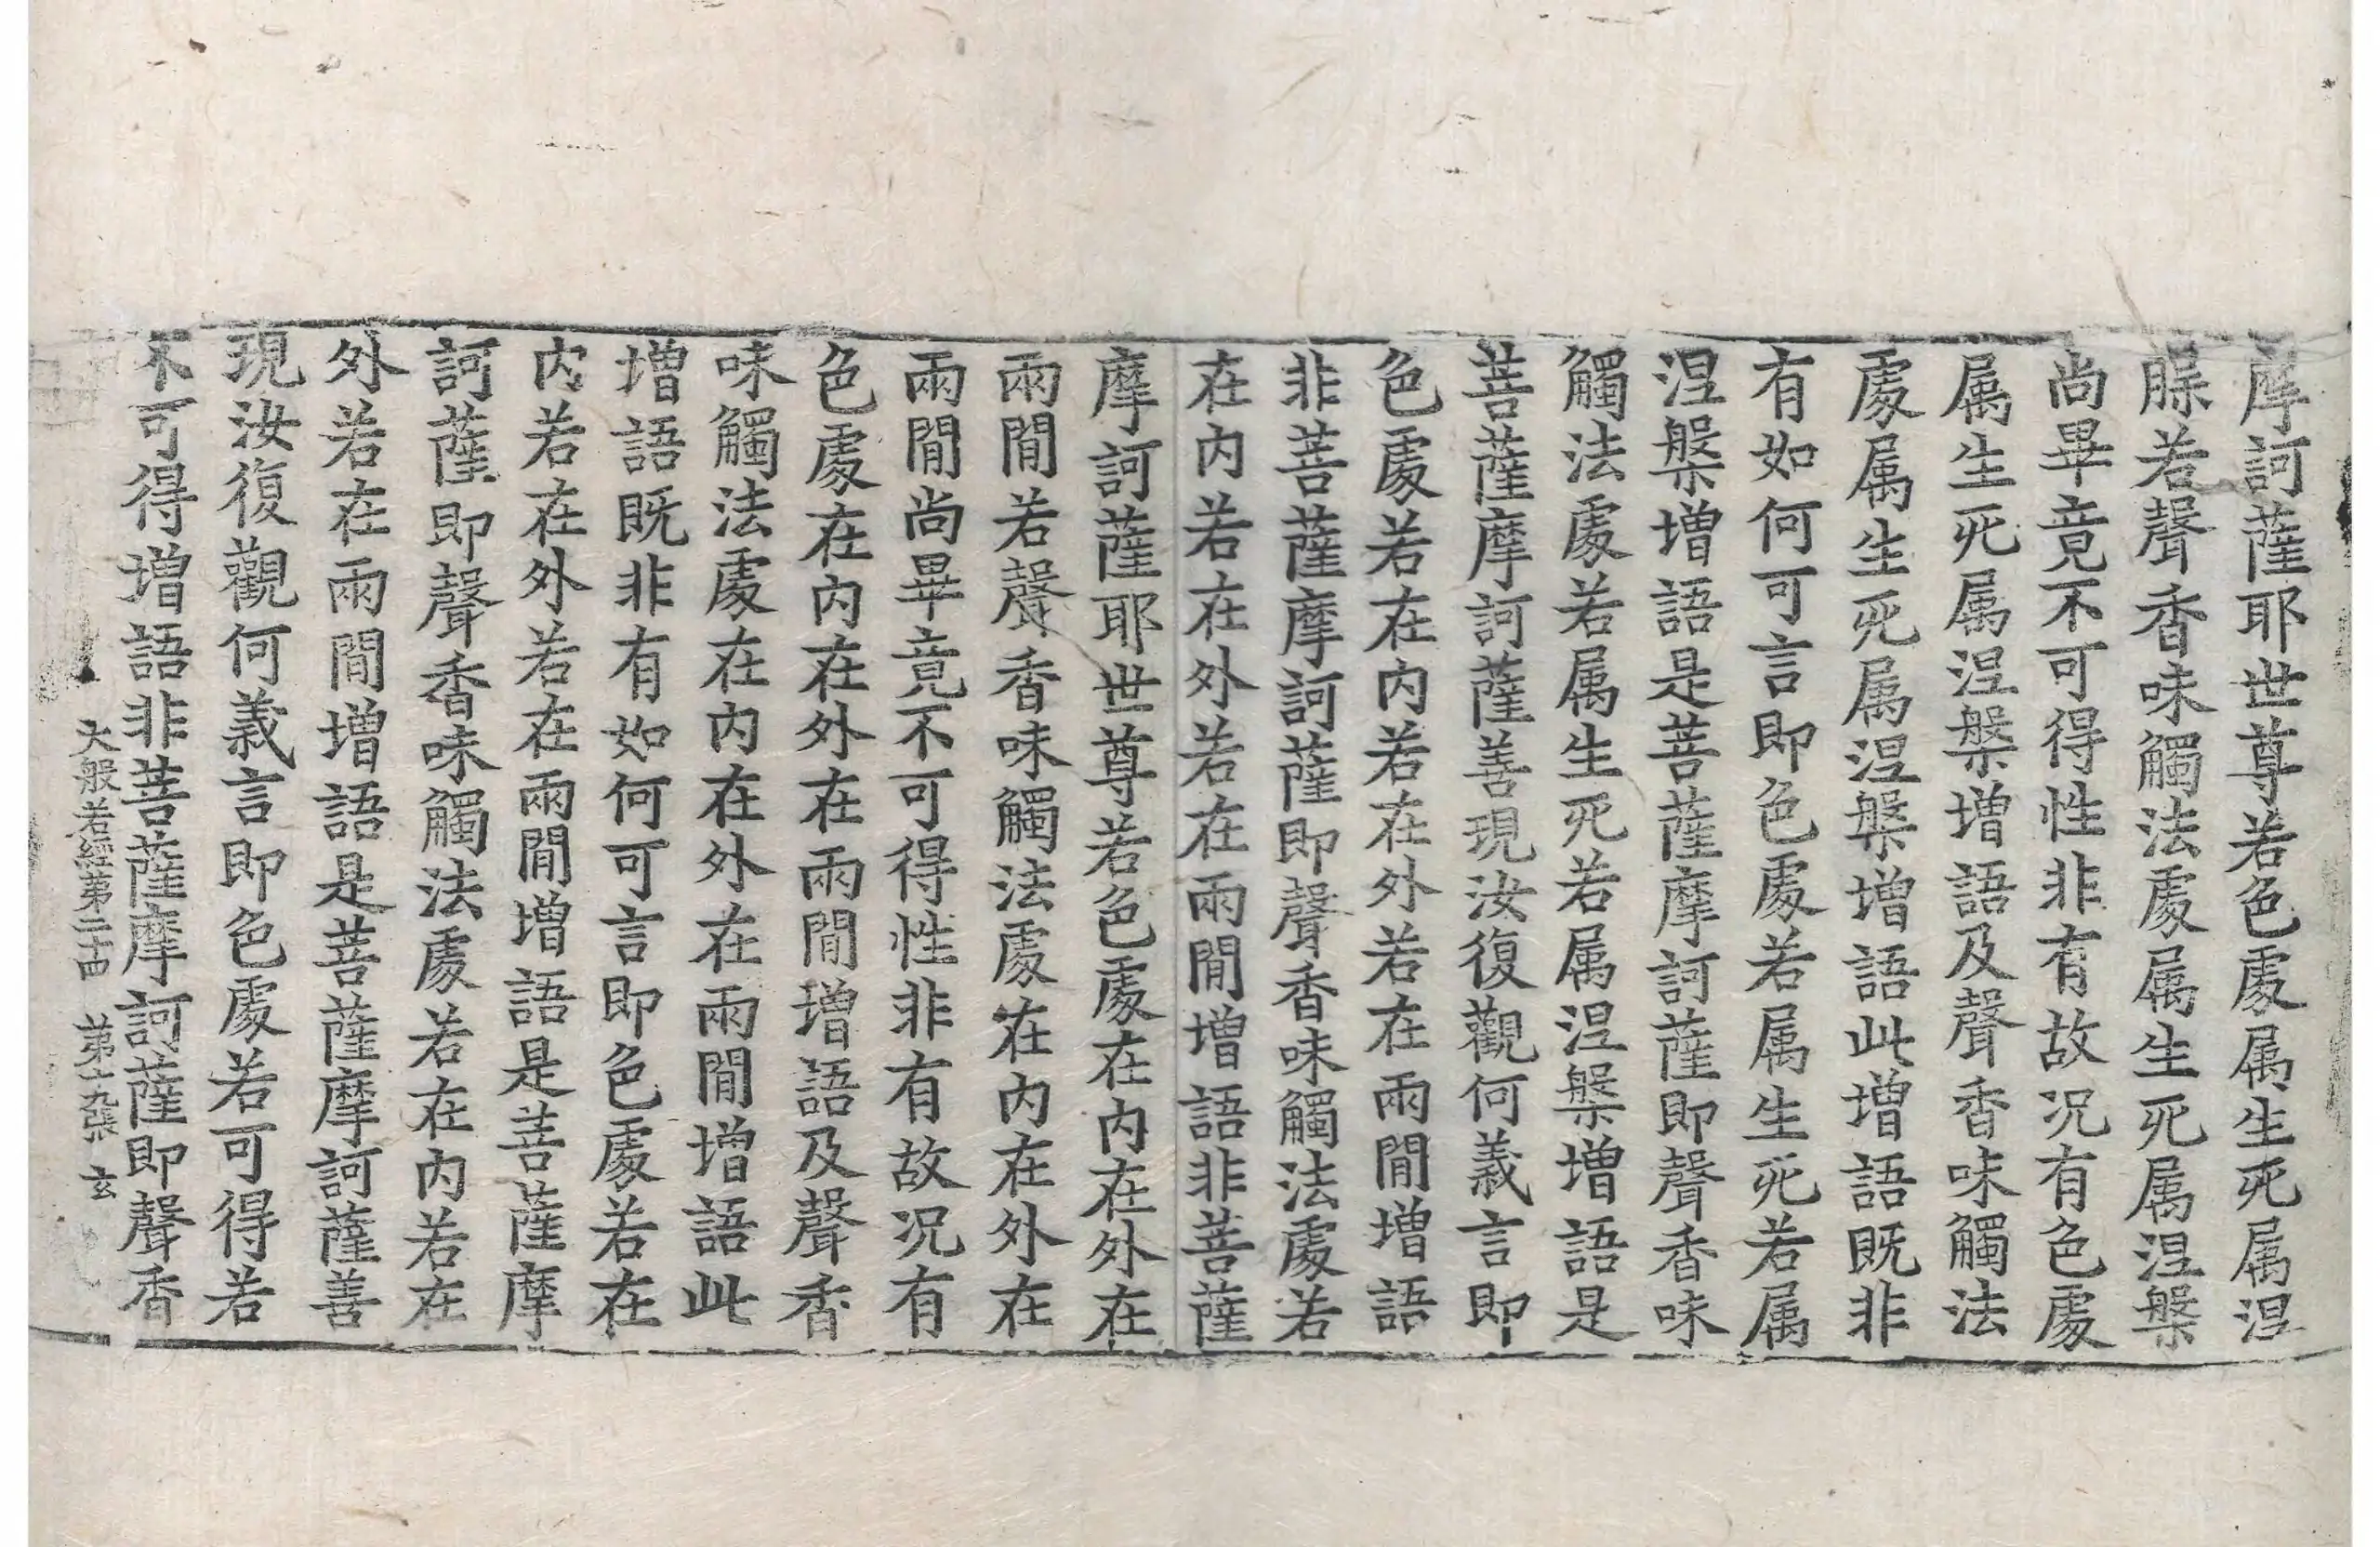 摩訶薩耶世尊若色處属生死属涅
脲若聲香味觸法處属生死属涅槃
尚畢竟不可得性非有故况有色處
属生死属涅槃增語及聲香味觸法
處属生死属涅槃增語此增語既非
有如何可言即色處若属生死若属
涅槃增語是菩薩摩訶薩即聲香味
觸法處若属生死若属涅槃增語是
菩薩摩訶薩善現汝復觀何義言即
色處若在内若在外若在兩間增語
非菩薩摩訶薩即聲香味觸法處若
在内若在外若在兩間增語非菩薩
摩訶薩耶世尊若色處在内在外在
兩間若聲香味觸法處在内在外在
兩間尚畢竟不可得性非有故况有
色處在内在外在兩間增語及聲香
味觸法處在内在外在兩間增語此
增語既非有如何可言即色處若在
内若在外若在兩間增語是菩薩摩
訶薩即聲香味觸法處若在内若在
外若在兩間增語是菩薩摩訶薩善
現汝復觀何義言即色處若可得若
不可得增語非菩薩摩訶薩即聲香
大般若經第二十四 第十九張 玄